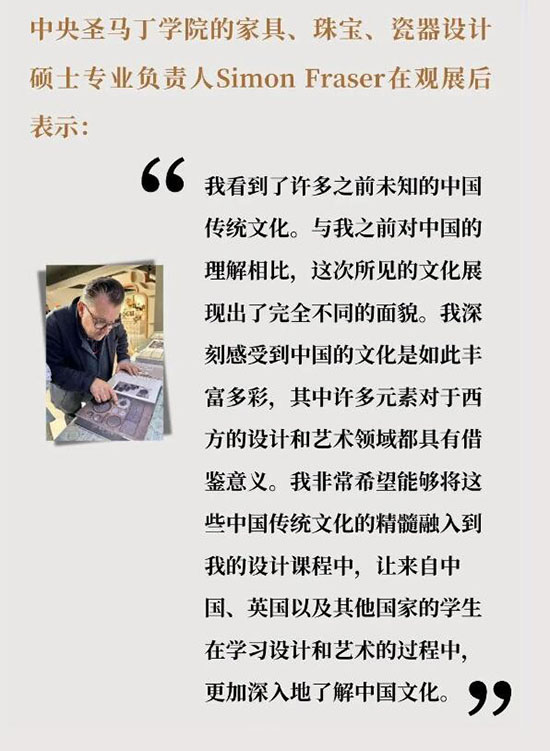 中央圣马丁学院的家具、珠宝、瓷器设计
硕士专业负责人Simon Fraser在观展后
表示：
“
我看到了许多之前未知的中国
传统文化。与我之前对中国的
理解相比，这次所见的文化展
现出了完全不同的面貌。我深
刻感受到中国的文化是如此丰
富多彩，其中许多元素对于西
方的设计和艺术领域都具有借
鉴意义。我非常希望能够将这
些中国传统文化的精髓融入到
我的设计课程中，让来自中
国、英国以及其他国家的学生
在学习设计和艺术的过程中，
更加深入地了解中国文化。
”